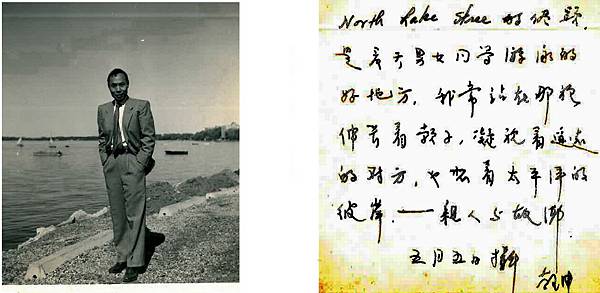 North Lake Shore 的
是夏天男女同學游泳的
好地方，我常站在那裡
伸長着頸子，凝視着遙遠
的對方，也想着太平洋的
彼岸．——親人与故鄉．
五月五日攝